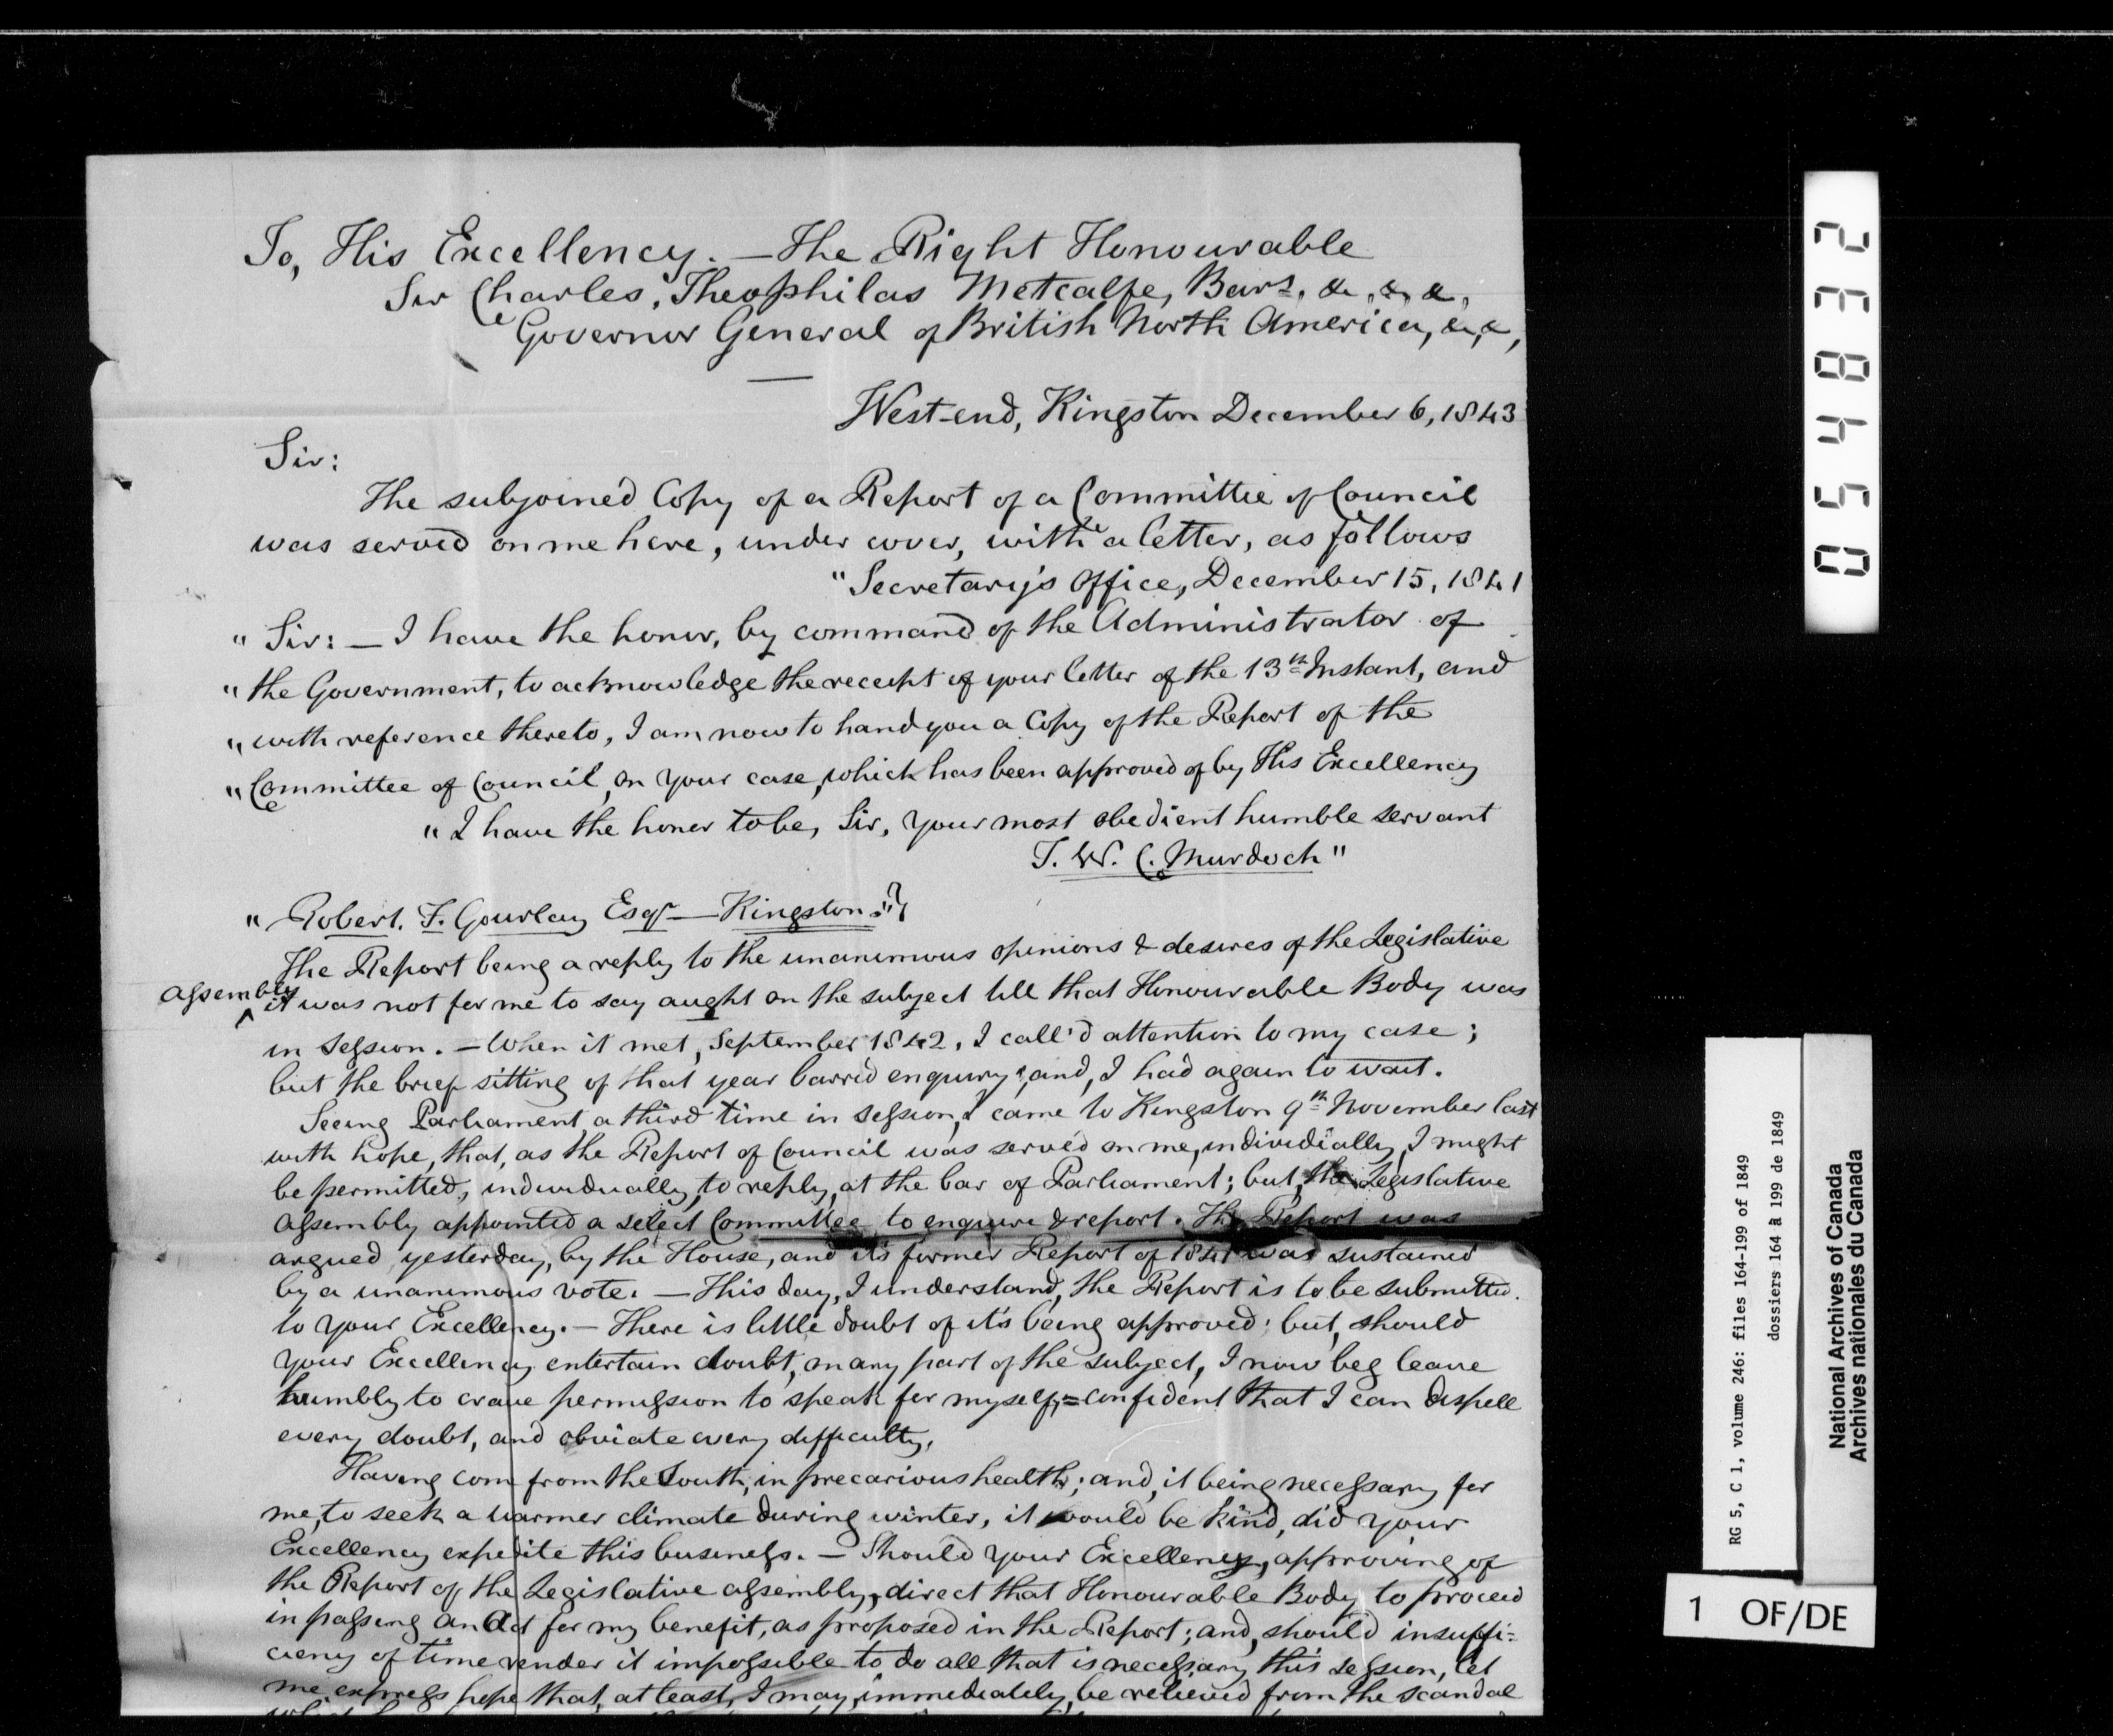 To, His Excellency. — The Right Honourable
Sir Charles, Theophilas Metcalfe, Bart. &, &, &,
Governor General of British North America, &, &,
West-end, Kingston December 6, 1843
Sir:
The subjoined Copy of a Report of a Committee of Council
was served on me here, under cover, with a letter, as follows
"Secretary's Office, December 15, 1841
" Sir: — I have the honor, by command of the Administrator of
" the Government, to acknowledge the receipt of your letter of the 13th Instant, and
" with reference thereto, I am now to hand you a Copy of the Report of the
" Committee of Council, on your case, which has been approved of by His Excellency
" I have the honor to be, Sir, your most obedient humble servant
T. W. C. Murdoch"
" Robert. F. Gourlay Esqr — Kingston."
The Report being a reply to the unanimous opinions & desires of the Legislative
Assembly
^ it was not for me to say aught on the subject till that Honourable Body was
in Session. — When it met, September 1842, I call'd attention to my case;
but the brief sitting of that year barred enquiry; and, I had again to wait.
Seeing Parliament a third time in session, I came to Kingston 9th November last
with hope, that, as the Report of Council was served on me, individually, I might
be permitted, individually, to reply, at the bar of Parliament; but, the Legislative
Assembly appointed a select Committee to enquire & report. The Report was
argued yesterday, by the House, and its former Report of 1841 was sustained
by a unanimous vote. — This day, I understand, the Report is to be submitted.
to Your Excellency. — There is little doubt of it's being approved; but, should
Your Excellency entertain doubt, on any part of the subject, I now beg leave
humbly to crave permission to speak for myself, = confident that I can dispell
every doubt, and obviate every difficulty.
Having com from the South, in precarious health; and, it being necessary for
me, to seek a warmer climate during winter, it would be kind, did Your
Excellency expedite this business. — Should Your Excellency, approving of
the Report of the Legislative Assembly, direct that Honourable Body to proceed
in passing an Act for my benefit, as proposed in the Report; and, should insuffi=
ciency of time render it impossible to do all that is necessary this session, let
me express hope that, at least, I may, immediately, be relieved from the scandal
054832
RG 5, C 1, volume 246: files 164-199 of 1849
dossiers 164 à 199 de 1849
National Archives of Canada
Archives nationales du Canada
1 OF/DE